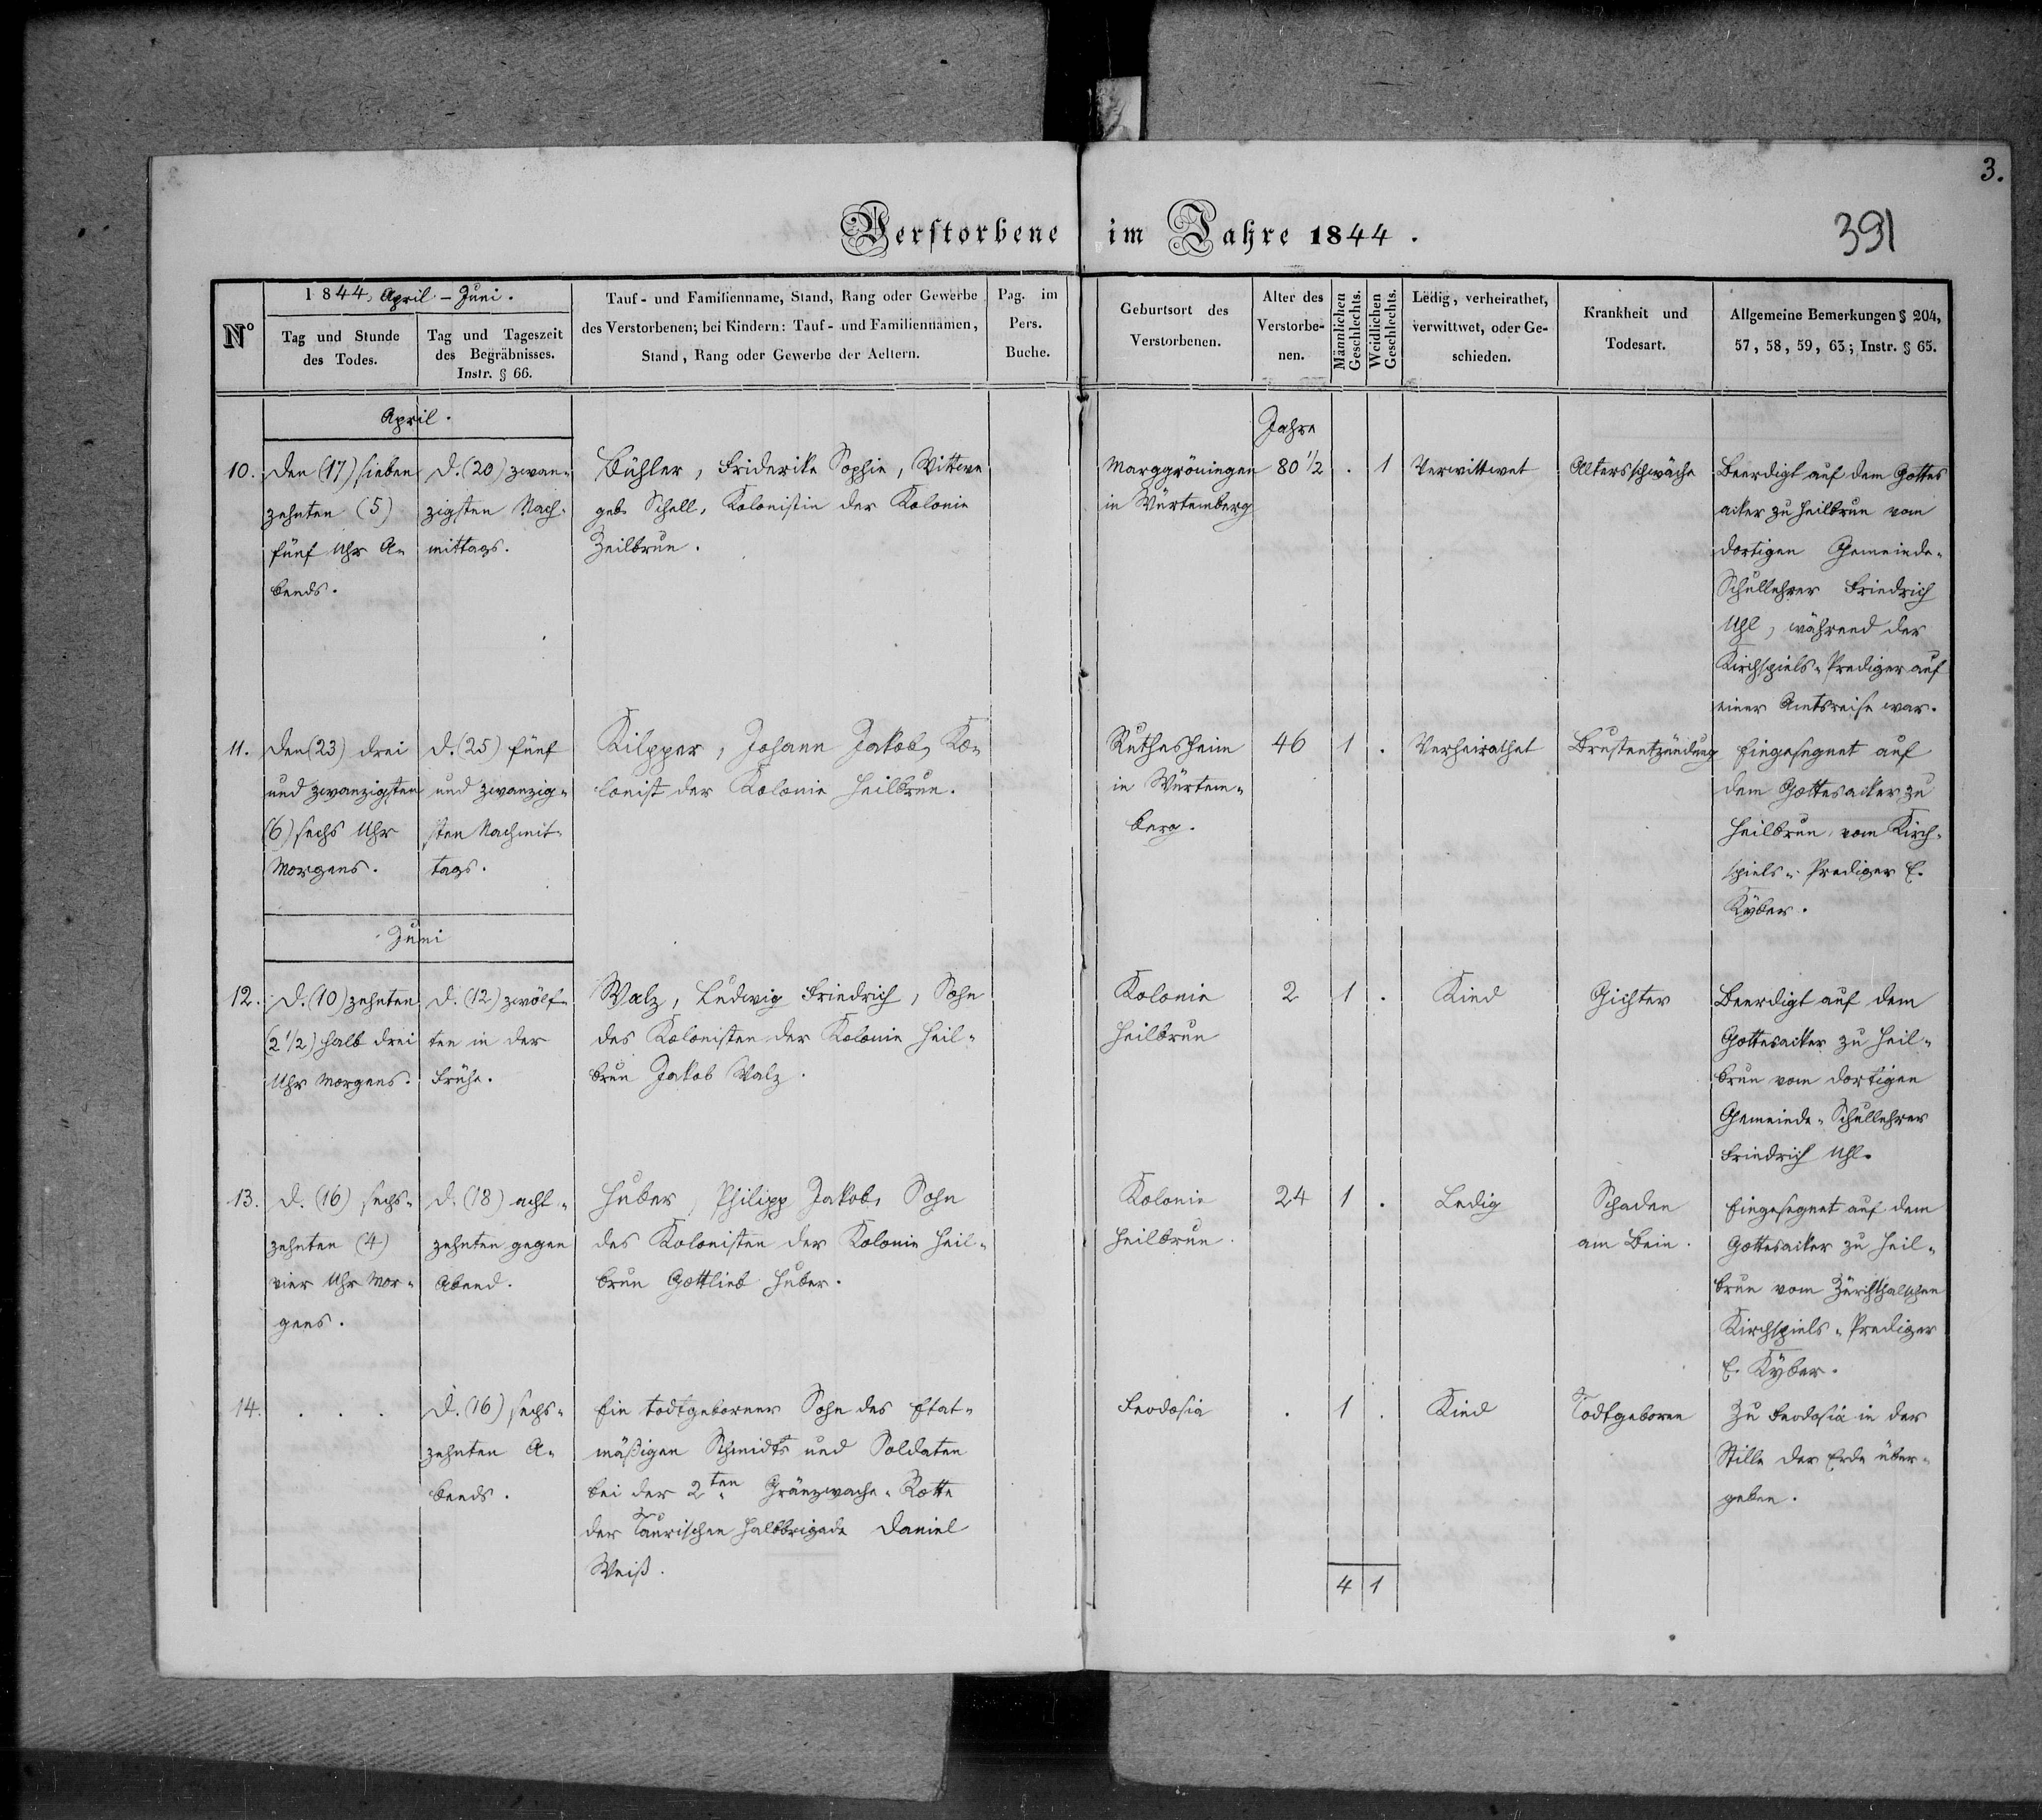 3.
391
Verstorbene im Jahre 1844.
Nº
1844, April - Juni.
Tag und Stunde
des Todes.
Tag und Tageszeit
des Begräbnisses.
Instr. § 66.
Tauf- und Familienname, Stand, Rang oder Gewerbe
des Verstorbenen; bei Kindern: Tauf- und Familiennamen,
Stand, Rang oder Gewerbe der Aeltern.
Pag. im
Pers.
Buche.
Geburtsort des
Verstorbenen.
Alter des
Verstorbe-
nen.
Männlichen
Geschlechts.
Weidlichen
Geschlechts.
Ledig, verheirathet,
verwittwet, oder Ge-
schieden.
Krankheit und
Todesart.
Allgemeine Bemerkungen § 204,
57, 58, 59, 63; Instr. § 65.
April.
Jahre
10.
Den (17) sieben
zehnten (5)
fünf Uhr A-
bends.
D. (20) zwan-
zigsten Nach-
mittags.
Bühler, Friderike Sophie, Wittwe
geb. Schell, Kolonistin der Kolonie
Heilbrun.
Marggröningen
in Würtemberg
80 1/2
.
1
Verwittwet
Altersschwäche
Beerdigt auf dem Gottes
acker zu Heilbrun vom
dortigen Gemeinde-
Schullehrer Friedrich
Uhl, während der
Kirchspiels-Prediger auf
einer Amtsreise war.
11.
Den (23) drei
und zwanzigsten
(6) sechs Uhr
Morgens.
D. (25) fünf
und zwanzig-
sten Nachmit-
tags.
Kilpper, Johann Jakob, Ko-
lonist der Kolonie Heilbrun.
Ruthesheim
in Würtem-
berg.
46
1
.
Verheirathet
Brustentzündung
Eingesegnet auf
dem Gottesacker zu
Heilbrun, vom Kirch-
spiels-Prediger E.
Kyber.
Juni
12.
D. (10) zehnten
(2 1/2) halb drei
Uhr Morgens.
D. (12) zwölf-
ten in der
Frühe.
Walz, Ludwig Friedrich, Sohn
des Kolonisten der Kolonie Heil-
brun Jakob Walz.
Kolonie
Heilbrun
2
1
.
Kind
Gichter
Beerdigt auf dem
Gottesacker zu Heil-
brun vom dortigen
Gemeinde-Schullehrer
Friedrich Uhl.
13.
D. (16) sechs-
zehnten (4)
vier Uhr Mor-
gens.
D. (18) acht-
zehnten gegen
Abend.
Huber, Philipp Jakob, Sohn
des Kolonisten der Kolonie Heil-
brun Gottlieb Huber.
Kolonie
Heilbrun.
24
1
.
Ledig
Schaden
am Bein.
Eingesegnet auf dem
Gottesacker zu Heil-
brun vom Zürichthalschen
Kirchspiels-Prediger
E. Kyber.
14.
. . .
D. (16) sechs-
zehnten A-
bends.
Ein todtgeborner Sohn des Etat-
mäßigen Schmidts und Soldaten
bei der 2ten Gränzwache-Rotte
der Taurischen Halbbrigade Daniel
Weiß.
Feodosia
.
1
.
Kind
Todtgeboren
Zu Feodosia in der
Stille der Erde über-
geben.
4
1